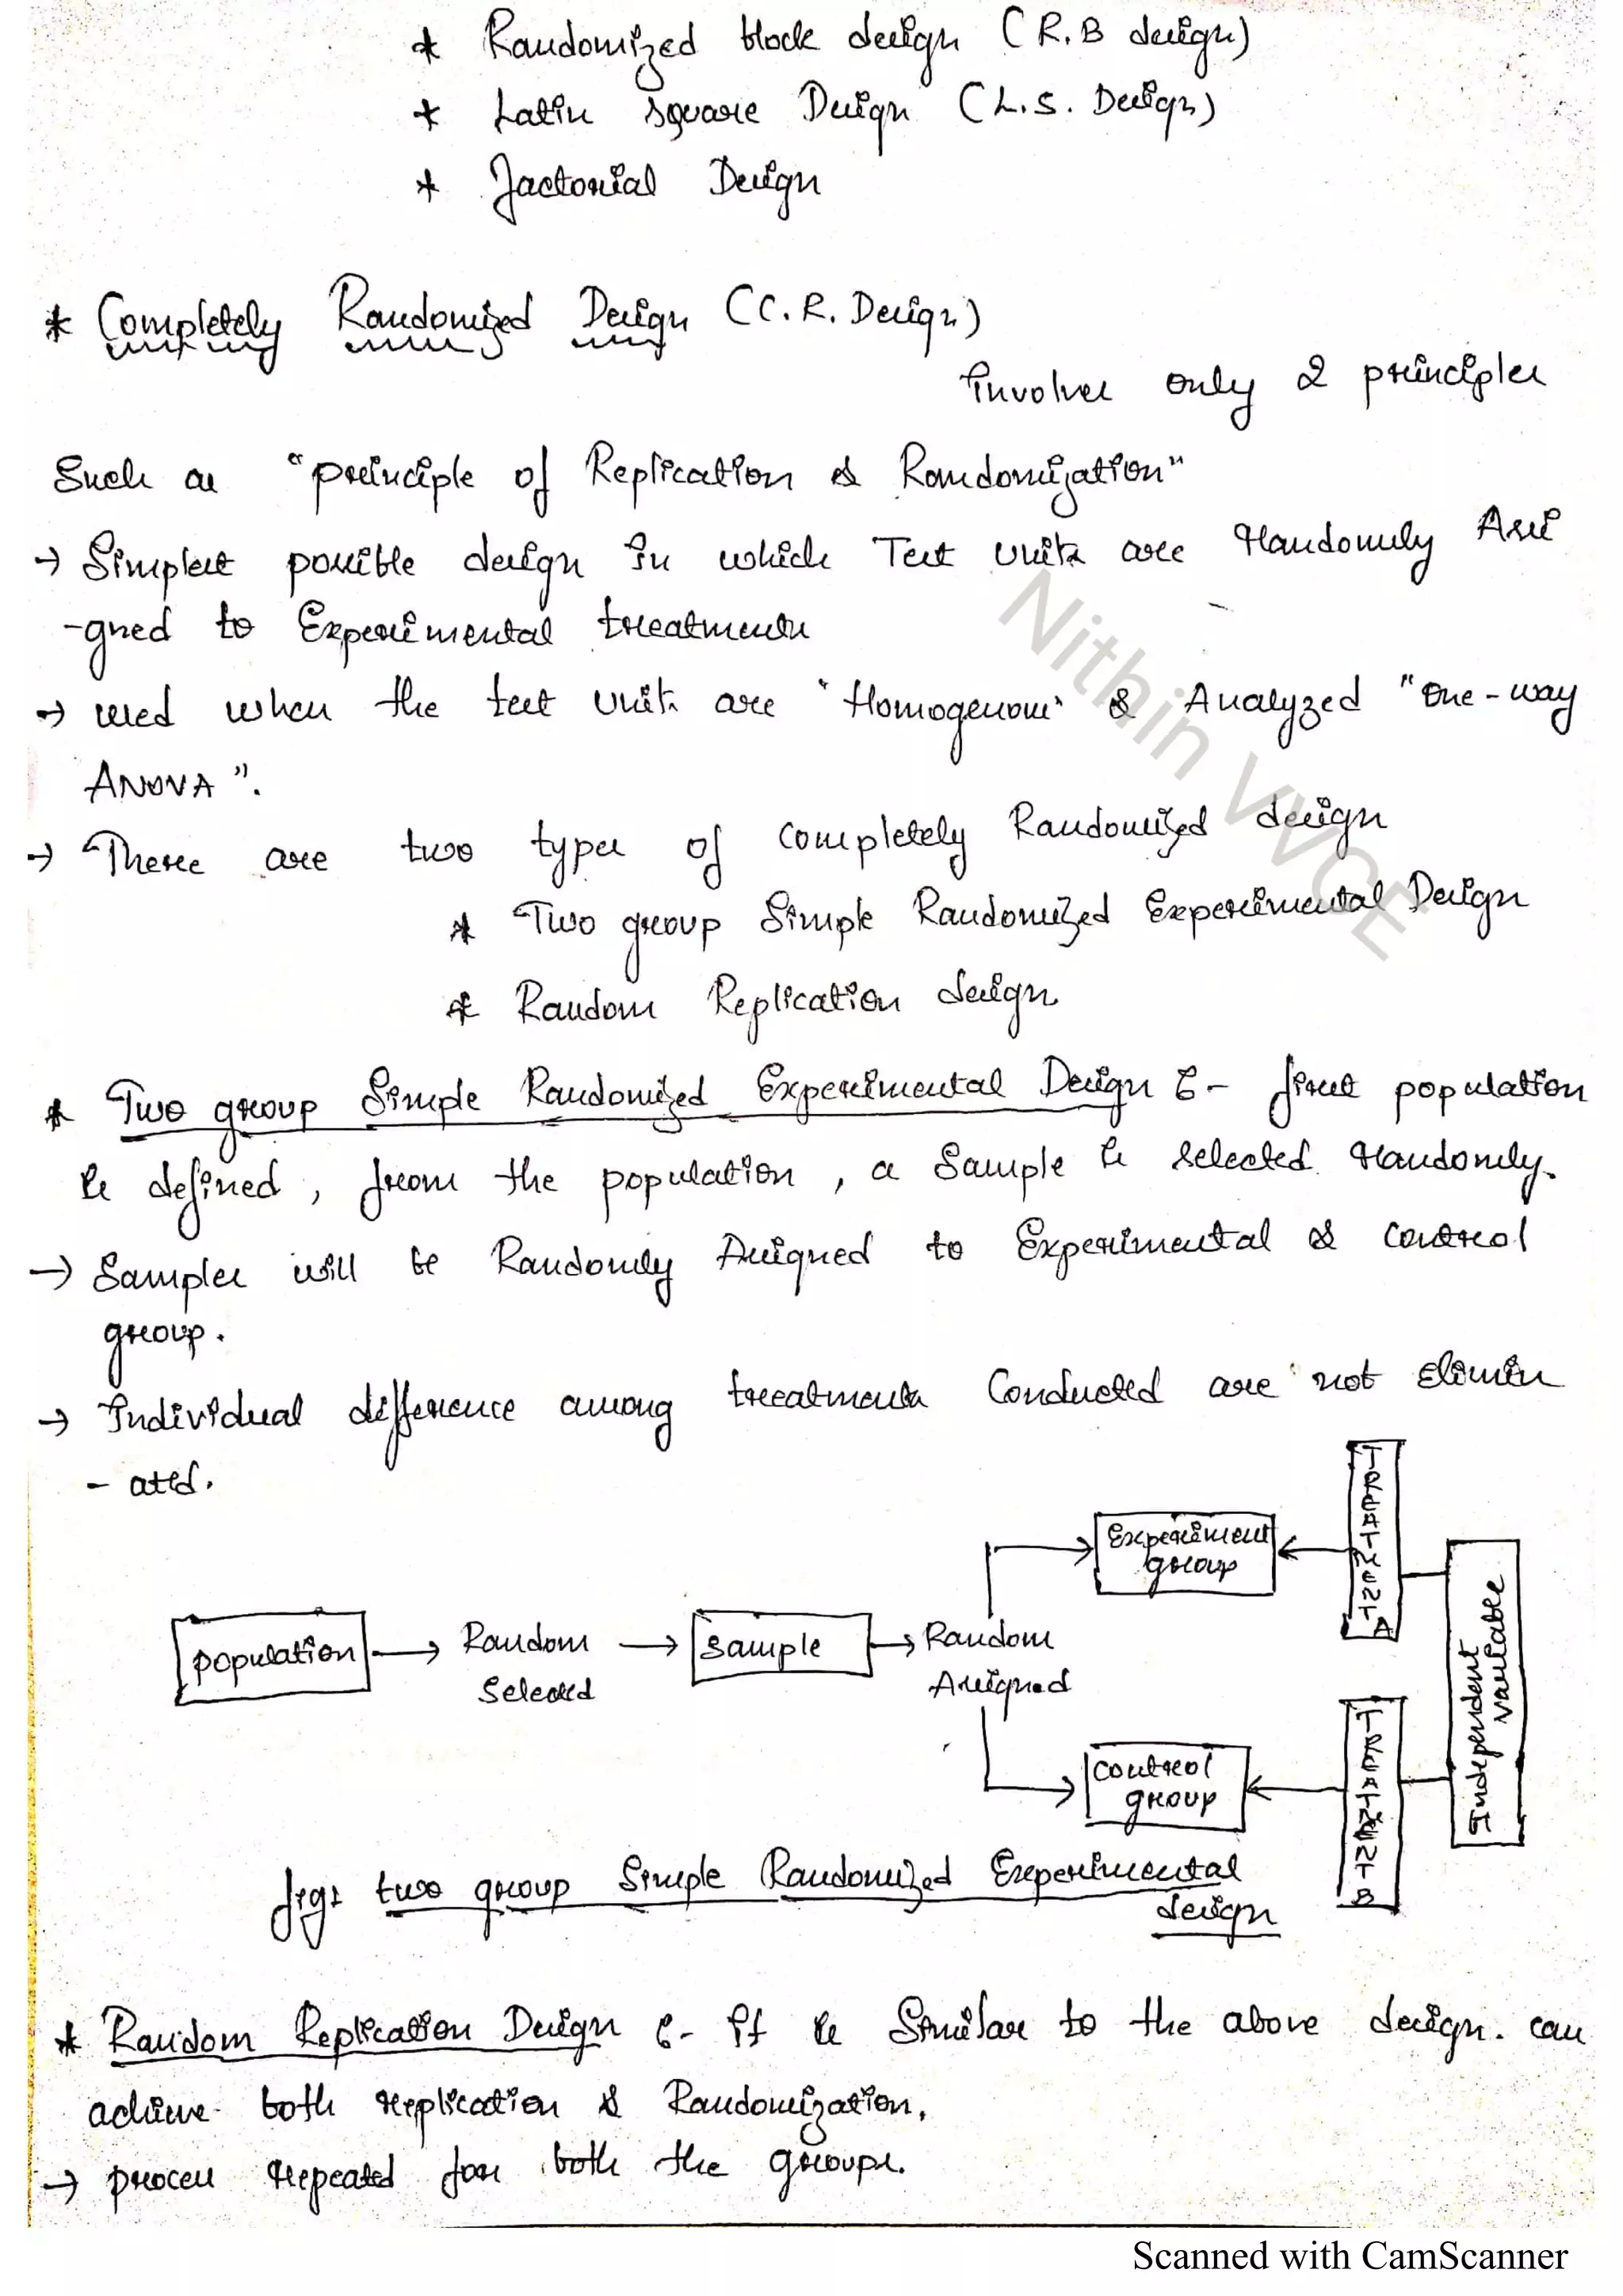 * Randomized block design (R.B design)
* Latin square Design (L.S. Design)
* Factorial Design
* Completely Randomized Design (C.R. Design)
Involves only 2 principles
Such as "principle of Replication & Randomization"
→ Simplest possible design in which Test units are randomly Assi
-gned to Experimental treatments
→ used when the test units are 'Homogenous' & Analyzed "one-way
ANOVA".
→ There are two types of completely Randomized design
* Two group Simple Randomized Experimental Design
* Random Replication design
* Two group Simple Randomized Experimental Design :- first population
is defined, from the population, a Sample is selected randomly.
→ Samples will be Randomly Assigned to Experimental & control
group.
→ Individual difference among treatments Conducted are not Elimin
- ated.
population → Random Selected → Sample → Random Assigned
Experiment group
Control group
TREATMENT A
TREATMENT B
Independent variable
fig: two group Simple Randomized Experimental
design
* Random Replication Design :- It is Similar to the above design. can
achieve both replication & Randomization.
→ process repeated for both the groups.
Nithin VVCE
Scanned with CamScanner